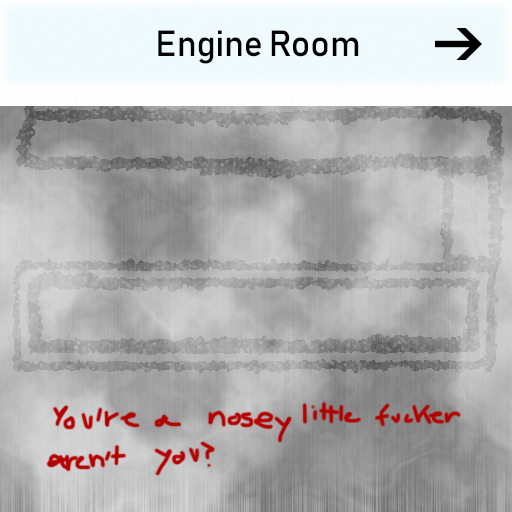 Engine Room →
You're a nosey little fucker
aren't you?